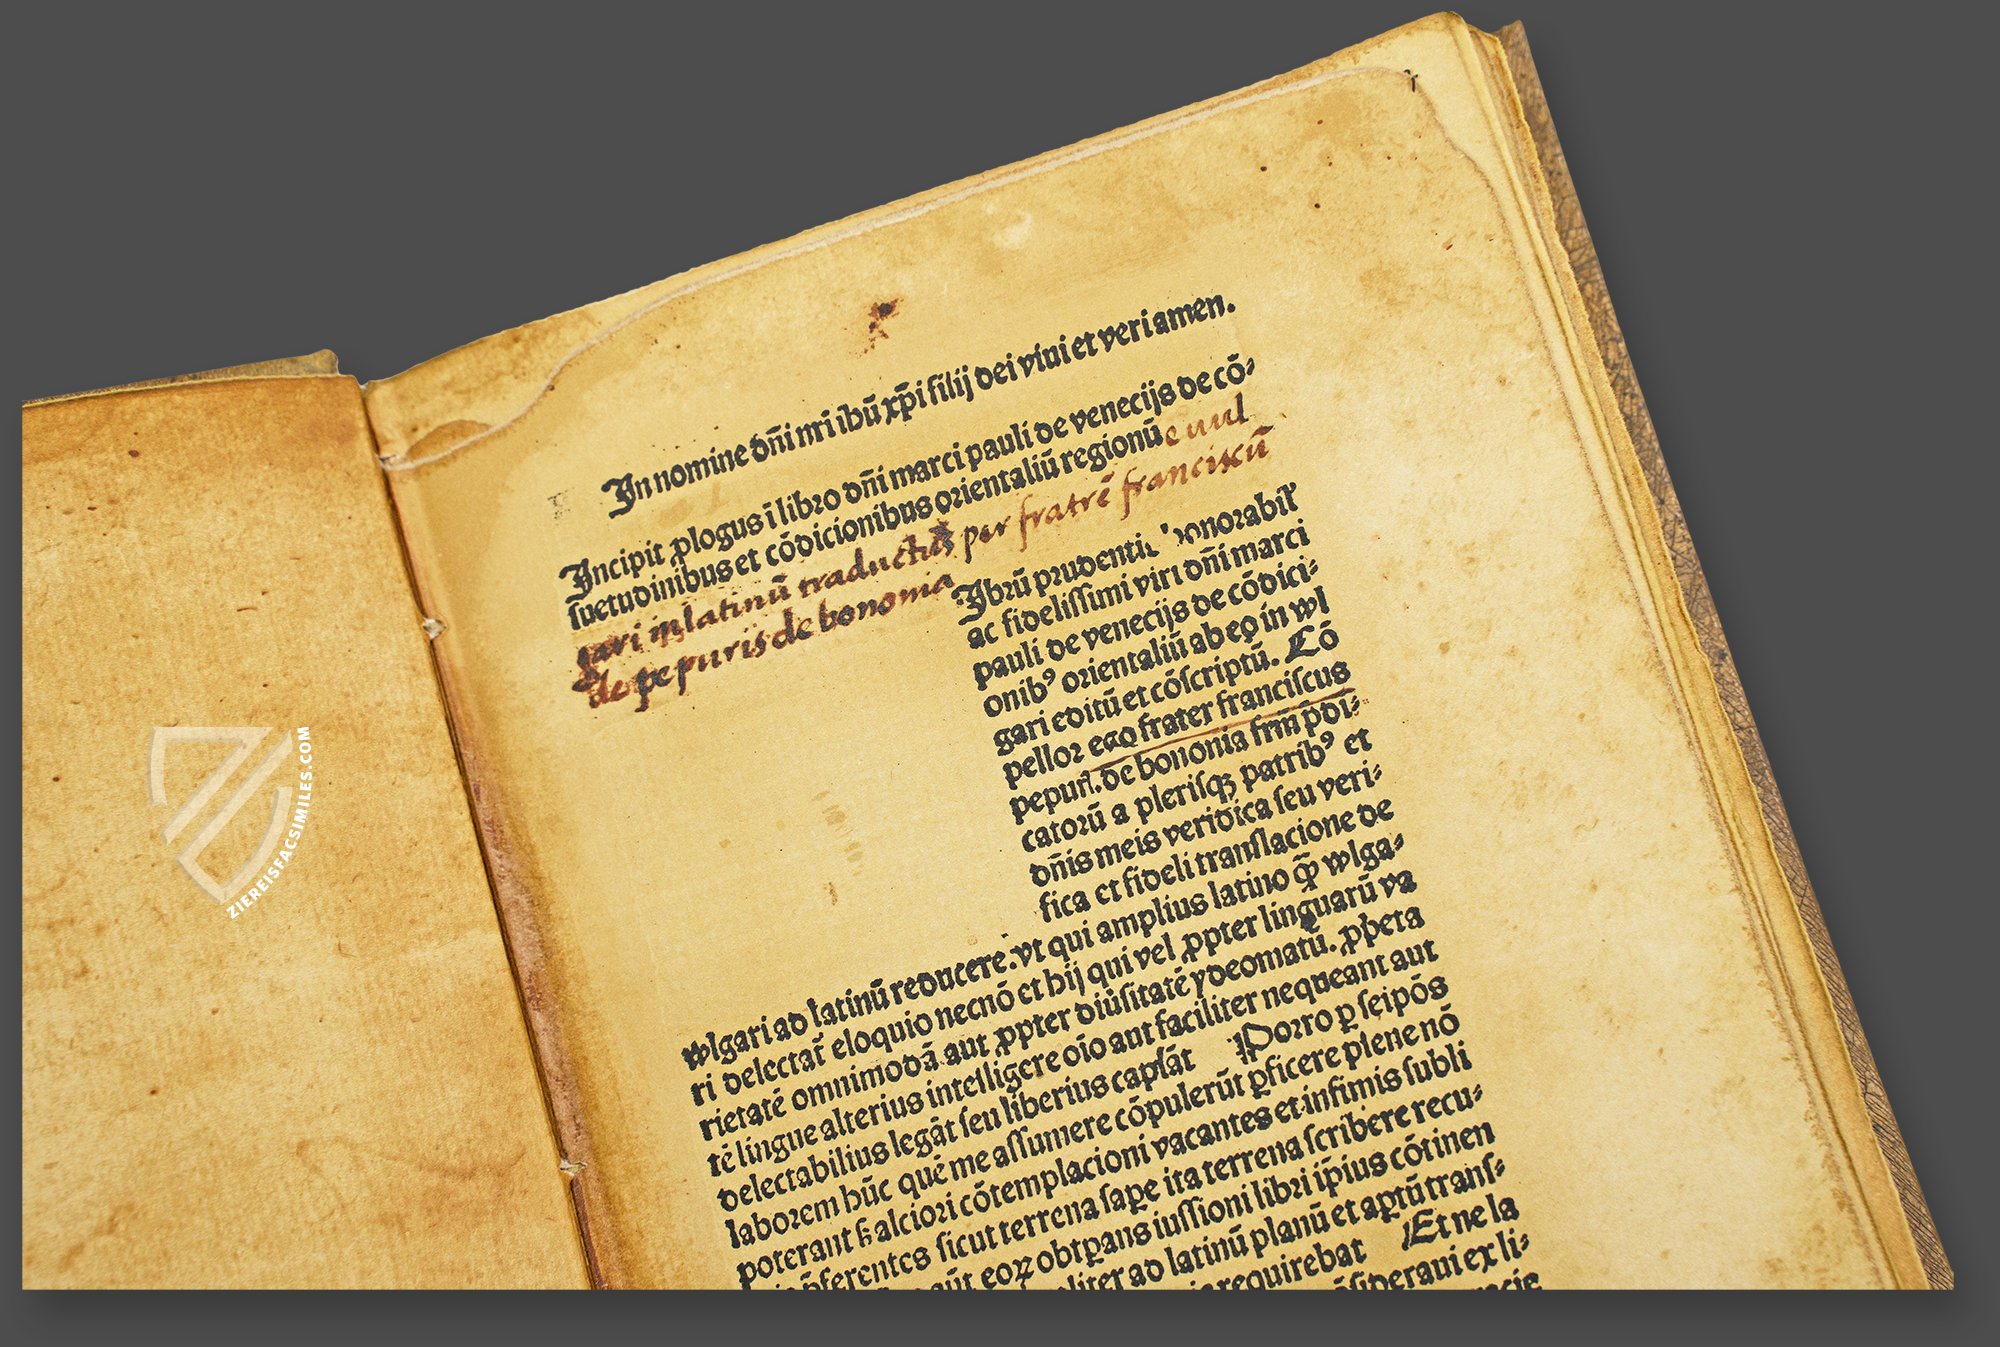 In nomine dñi nri ihū xp̄i filij dei viui et veri amen.
Incipit ꝓlogus ī libro dñi marci pauli de venecijs de cō⸗
suetudinibus et cōdicionibus orientaliū regionū e uul
gari in latinū traductus per fratrē franciscū
de pepuris de bononia
Ibrū prudentis honorabil'
ac fidelissimi viri dñi marci
pauli de venecijs de cōdici⸗
onibꝰ orientaliū ab eo in wl
gari editū et cōscriptū. Cō
pellor ego frater franciscus
pepur̃. de bononia frm̄ p̄di⸗
catorū a plerisqꝫ patribꝰ et
dñis meis veridica seu veri⸗
fica et fideli translacione de
wlgari ad latinū reducere. vt qui amplius latino q̄ꝫ wlga⸗
ri delectat̃ eloquio necnō et hij qui vel ꝓpter linguarū va
rietatē omnimodā aut ꝓpter diūsitatē ydeomatū. ꝓpheta
tē lingue alterius intelligere oīo aut faciliter nequeant aut
delectabilius legāt seu liberius capiāt Porro ꝑ seipōs
laborem hūc quē me assumere cōpulerūt ꝑficere plene nō
poterant s̄ alciori cōtemplacioni vacantes et infimis subli
p̄ferentes sicut terrena sape ita terrena scribere recu⸗
aūt eoꝝ obtꝑans iussioni libri ip̄ius cōtinen
aliter ad latinū planū et aꝑtū trans⸗
requirebat Et ne la
ōsideraui ex li⸗